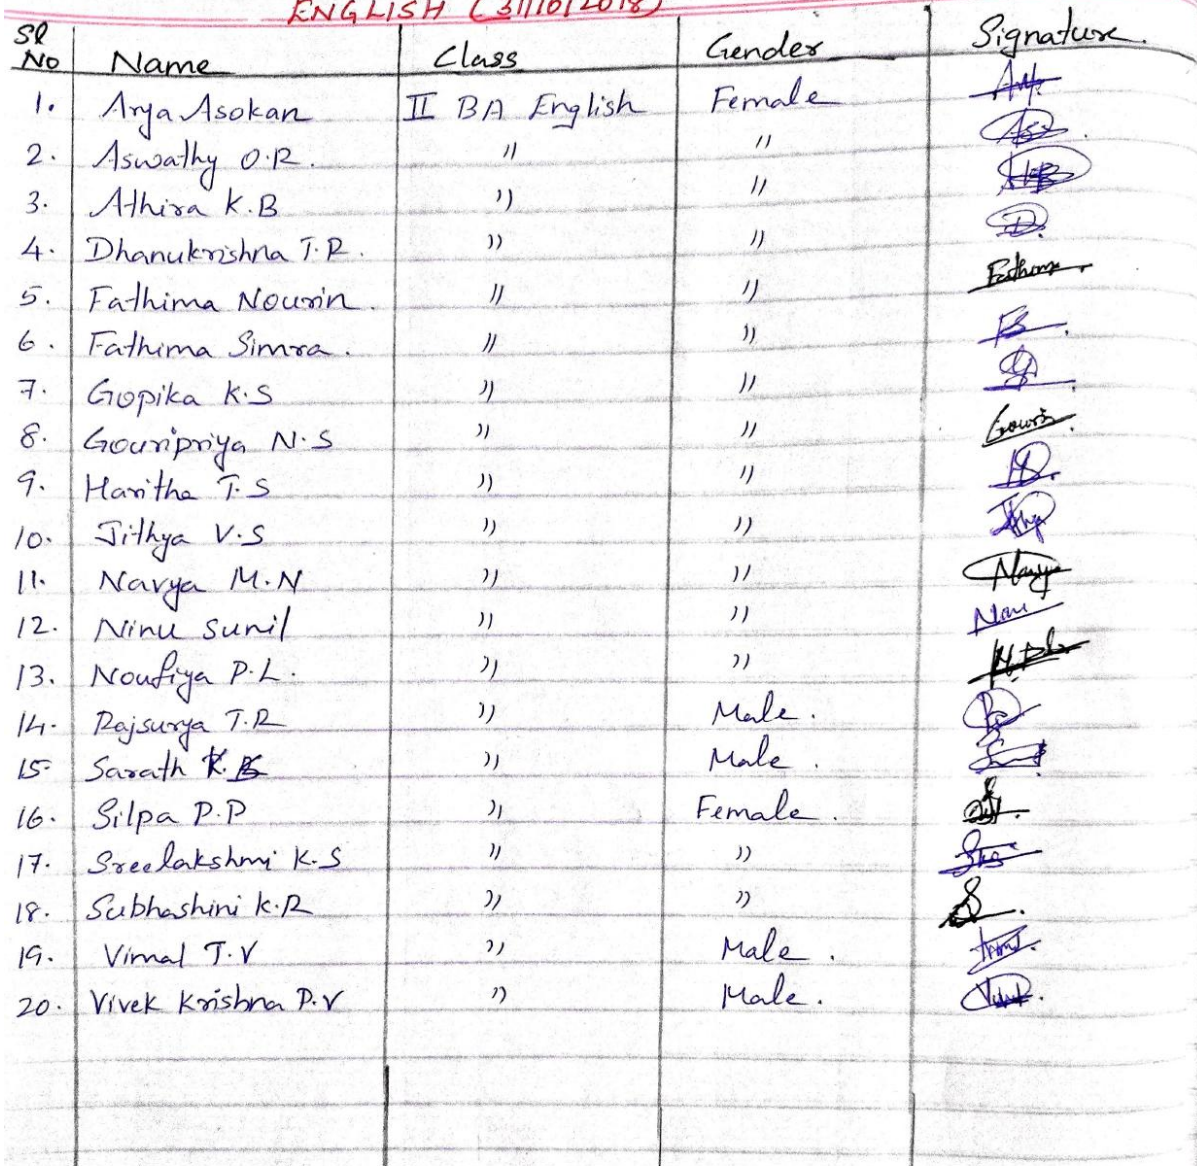 ENGLISH (31/10/2018)
Sl No Name Class Gender Signature.
1. Arya Asokan II BA English Female
2. Aswathy O.R. " "
3. Athira K.B " "
4. Dhanukrishna T.R. " "
5. Fathima Nourin. " " Fathima
6. Fathima Simra. " " FS
7. Gopika K.S " "
8. Gouripriya N.S " " Gowri
9. Haritha T.S " "
10. Jithya V.S " "
11. Navya M.N " " Navya
12. Ninu Sunil " "
13. Noufiya P.L. " "
14. Rajsurya T.R " Male.
15 Sarath K.B " Male.
16. Silpa P.P " Female.
17. Sreelakshmi K.S " "
18. Subhashini K.R " "
19. Vimal T.V " Male.
20. Vivek Krishna P.V " Male.